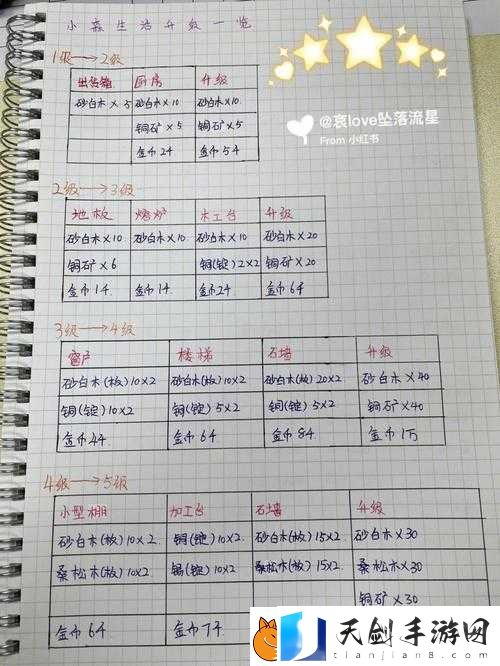 小森生活升级一览
@哀love坠落流星
From 小红书
1级→2级
出货箱 厨房 升级
砂白木×5 砂白木×10 砂白木×10
铜矿×5 铜矿×5
金币2千 金币5千
2级→3级
地板 烤炉 木工台 升级
砂白木×10 砂白木×10 砂白木×10 砂白木×20
铜矿×6 铜(锭)2×2 铜矿×20
金币1千 金币1千 金币2千 金币6千
3级→4级
窗户 楼梯 石墙 升级
砂白木(板)10×2 砂白木(板)10×2 砂白木(板)20×2 砂白木×40
铜(锭)10×2 铜(锭)5×2 铜(锭)5×2 铜矿×40
金币4千 金币6千 金币8千 金币1万
4级→5级
小型棚 加工台 石墙 升级
砂白木(板)10×2 铜(锭)10×2 砂白木(板)15×2 砂白木×30
桑松木(板)10×2 锡(锭)10×2 桑松木(板)15×2 桑松木×30
铜矿×30
金币6千 金币7千
天剑手游网
tianjian8.com